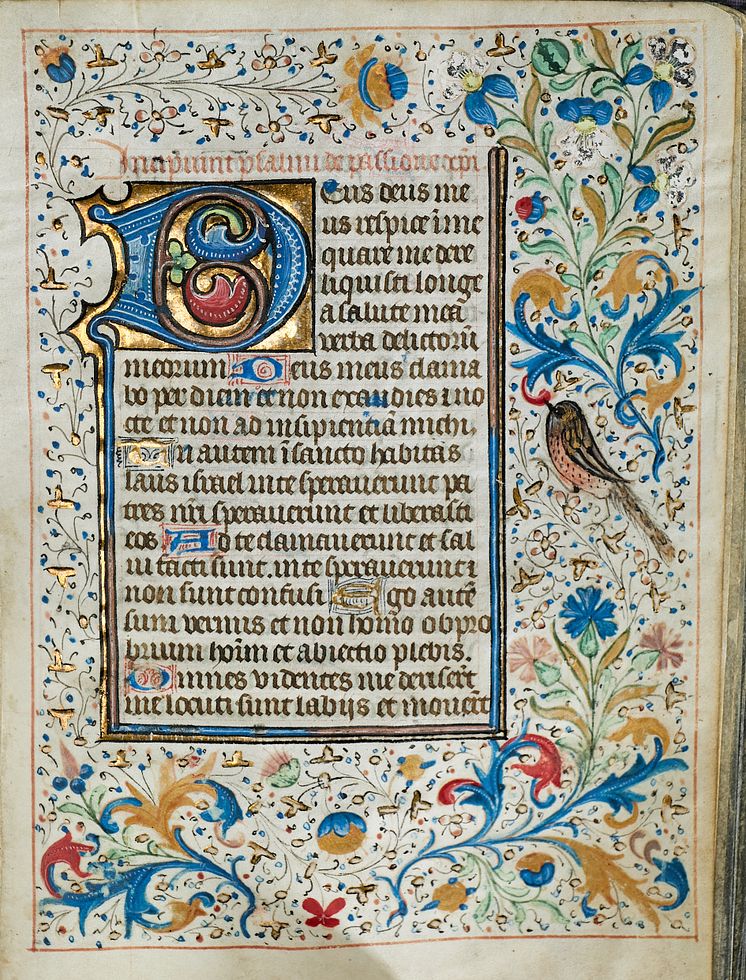 Incipiunt psalmi de passione xpi
Deus deus me
us respice i me
quare me dere
liquisti longe
a salute mea
verba delictoru
meorum Deus meus clama
bo per diem et non exaudies i no
cte et non ad insipientia michi,
Tu autem i sancto habitas
laus israel in te speraverunt pa
tres nri speraverunt et liberasti
eos Ad te clamaverunt et sal
vi facti sunt. in te speraverunt i
non sunt confusi Ego aute
sum vermis et non homo obpro
brium hoim et abiectio plebis.
Omnes videntes me deriseřt
me locuti sunt labijs et moverūt